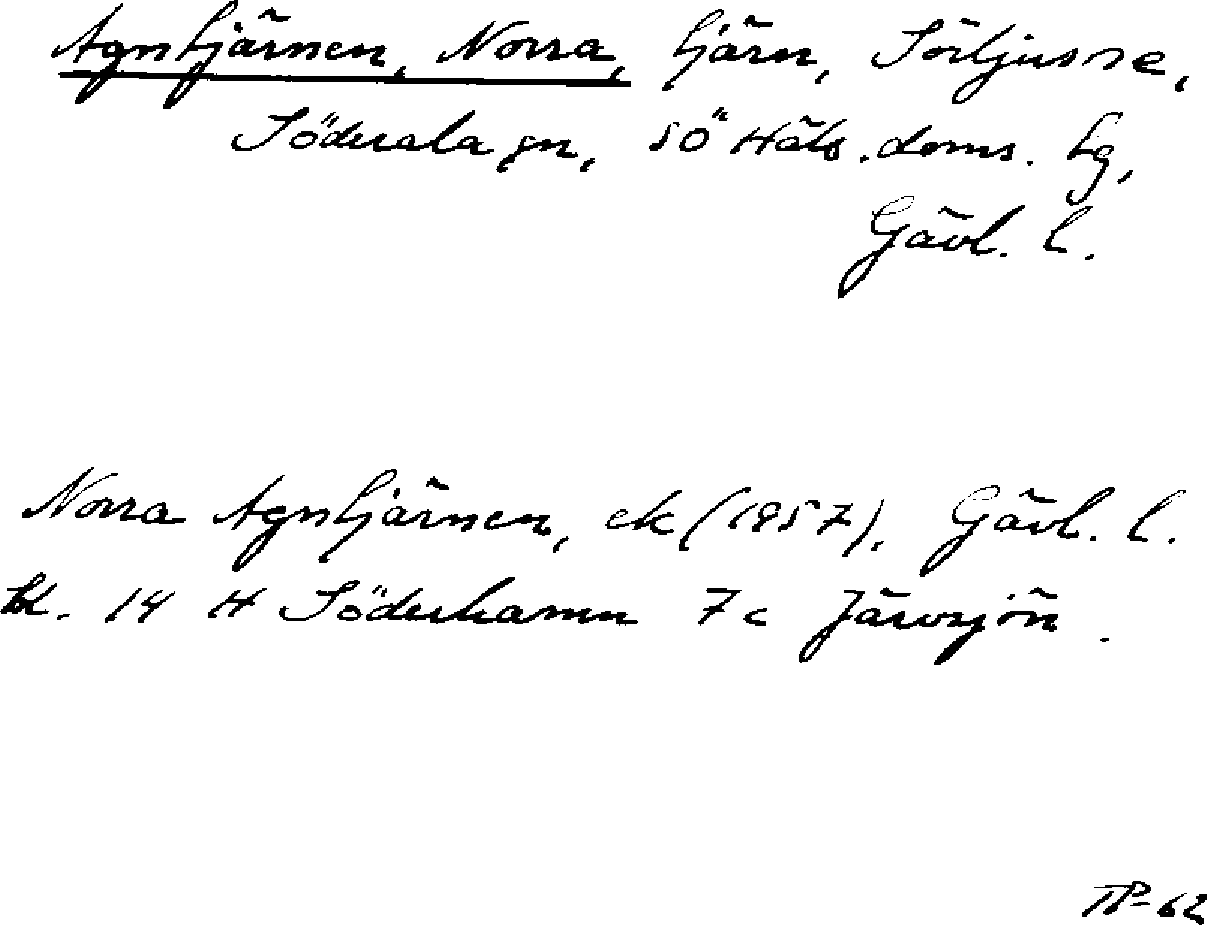 Agntjärnen, Norra, tjärn, Sörljusne,
Söderala sn, SÖ Häls. doms. tg,
Gävl. l.
Norra Agntjärnen, ek (1957), Gävl. l.
bl. 14 H Söderhamn 7c Järvsjön.
TP-62